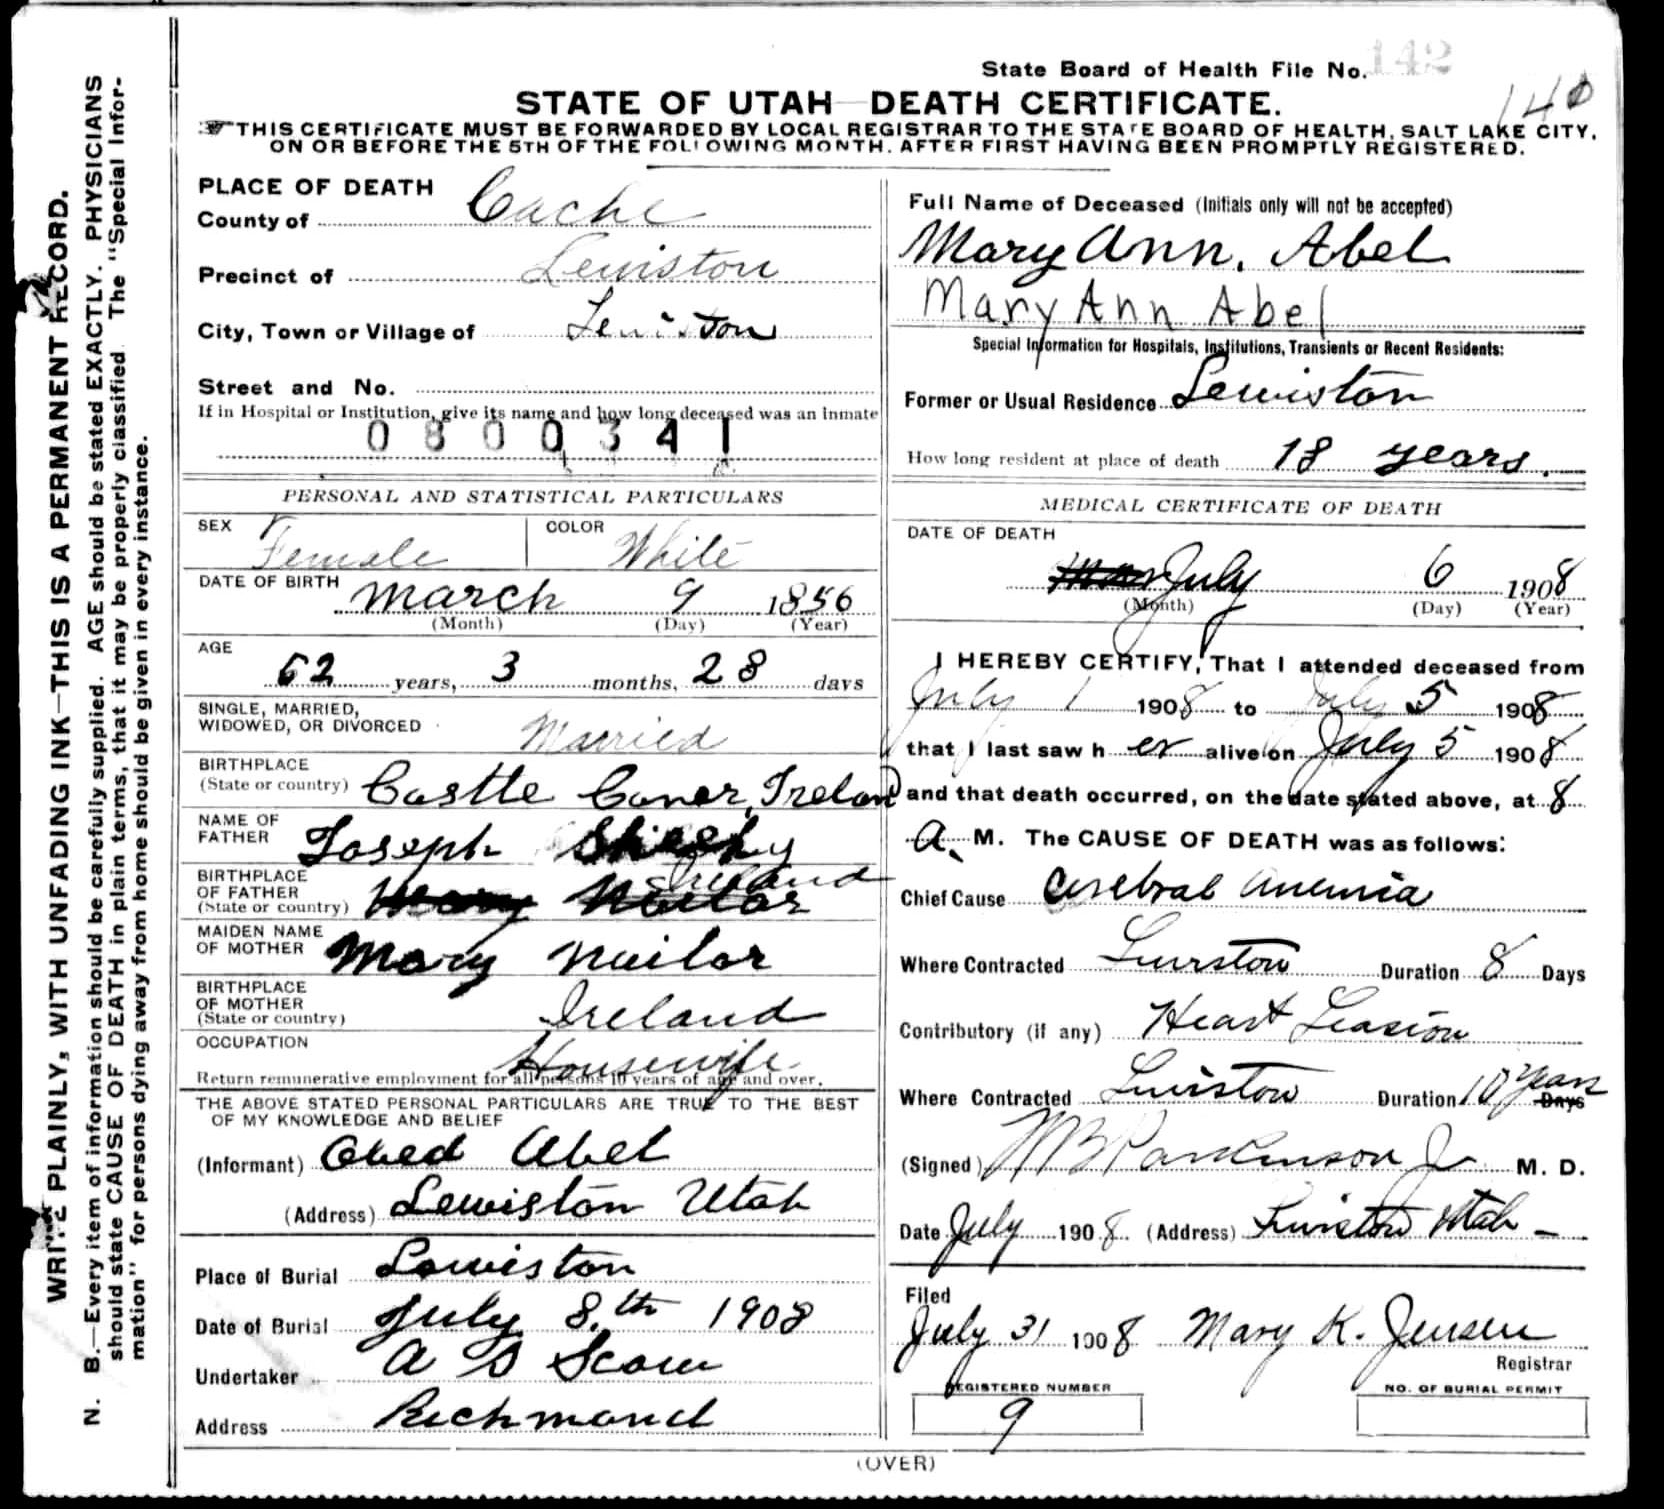 WRITE PLAINLY, WITH UNFADING INK—THIS IS A PERMANENT RECORD.
N. B.—Every item of information should be carefully supplied. AGE should be stated EXACTLY. PHYSICIANS
should state CAUSE OF DEATH in plain terms, that it may be properly classified. The "Special Infor-
mation" for persons dying away from home should be given in every instance.
State Board of Health File No. 142
STATE OF UTAH—DEATH CERTIFICATE.
THIS CERTIFICATE MUST BE FORWARDED BY LOCAL REGISTRAR TO THE STATE BOARD OF HEALTH, SALT LAKE CITY,
ON OR BEFORE THE 5TH OF THE FOLLOWING MONTH, AFTER FIRST HAVING BEEN PROMPTLY REGISTERED.
PLACE OF DEATH
County of Cache
Precinct of Lewiston
City, Town or Village of Lewiston
Street and No.
If in Hospital or Institution, give its name and how long deceased was an inmate
0800341
PERSONAL AND STATISTICAL PARTICULARS
SEX Female COLOR White
DATE OF BIRTH March 9 1856
(Month) (Day) (Year)
AGE
52 years, 3 months, 28 days
SINGLE, MARRIED,
WIDOWED, OR DIVORCED Married
BIRTHPLACE
(State or country) Castle Coner, Ireland
NAME OF
FATHER Joseph
BIRTHPLACE
OF FATHER Ireland
(State or country) Mary Nailor
MAIDEN NAME
OF MOTHER Mary Nailor
BIRTHPLACE
OF MOTHER
(State or country) Ireland
OCCUPATION Housewife
Return remunerative employment for all persons 10 years of age and over.
THE ABOVE STATED PERSONAL PARTICULARS ARE TRUE TO THE BEST
OF MY KNOWLEDGE AND BELIEF
(Informant) Obed Abel
(Address) Lewiston Utah
Place of Burial Lewiston
Date of Burial July 8.th 1908
Undertaker A Scow
Address Richmond
Full Name of Deceased (Initials only will not be accepted)
Mary Ann. Abel
Mary Ann Abel
Special Information for Hospitals, Institutions, Transients or Recent Residents:
Former or Usual Residence Lewiston
How long resident at place of death 18 years.
MEDICAL CERTIFICATE OF DEATH
DATE OF DEATH
July 6 1908
(Month) (Day) (Year)
I HEREBY CERTIFY, That I attended deceased from
July 1 1908 to July 5 1908
that I last saw her alive on July 5 1908
and that death occurred, on the date stated above, at 8
A. M. The CAUSE OF DEATH was as follows:
Chief Cause Cerebral Anemia
Where Contracted Lewiston Duration 8 Days
Contributory (if any) Heart Leasion
Where Contracted Lewiston Duration 10 Years Days
(Signed) W B Parkinson Jr M. D.
Date July 1908 (Address) Lewiston Utah —
Filed
July 31 1908 Mary K. Jensen
Registrar
REGISTERED NUMBER
9
NO. OF BURIAL PERMIT
(OVER)